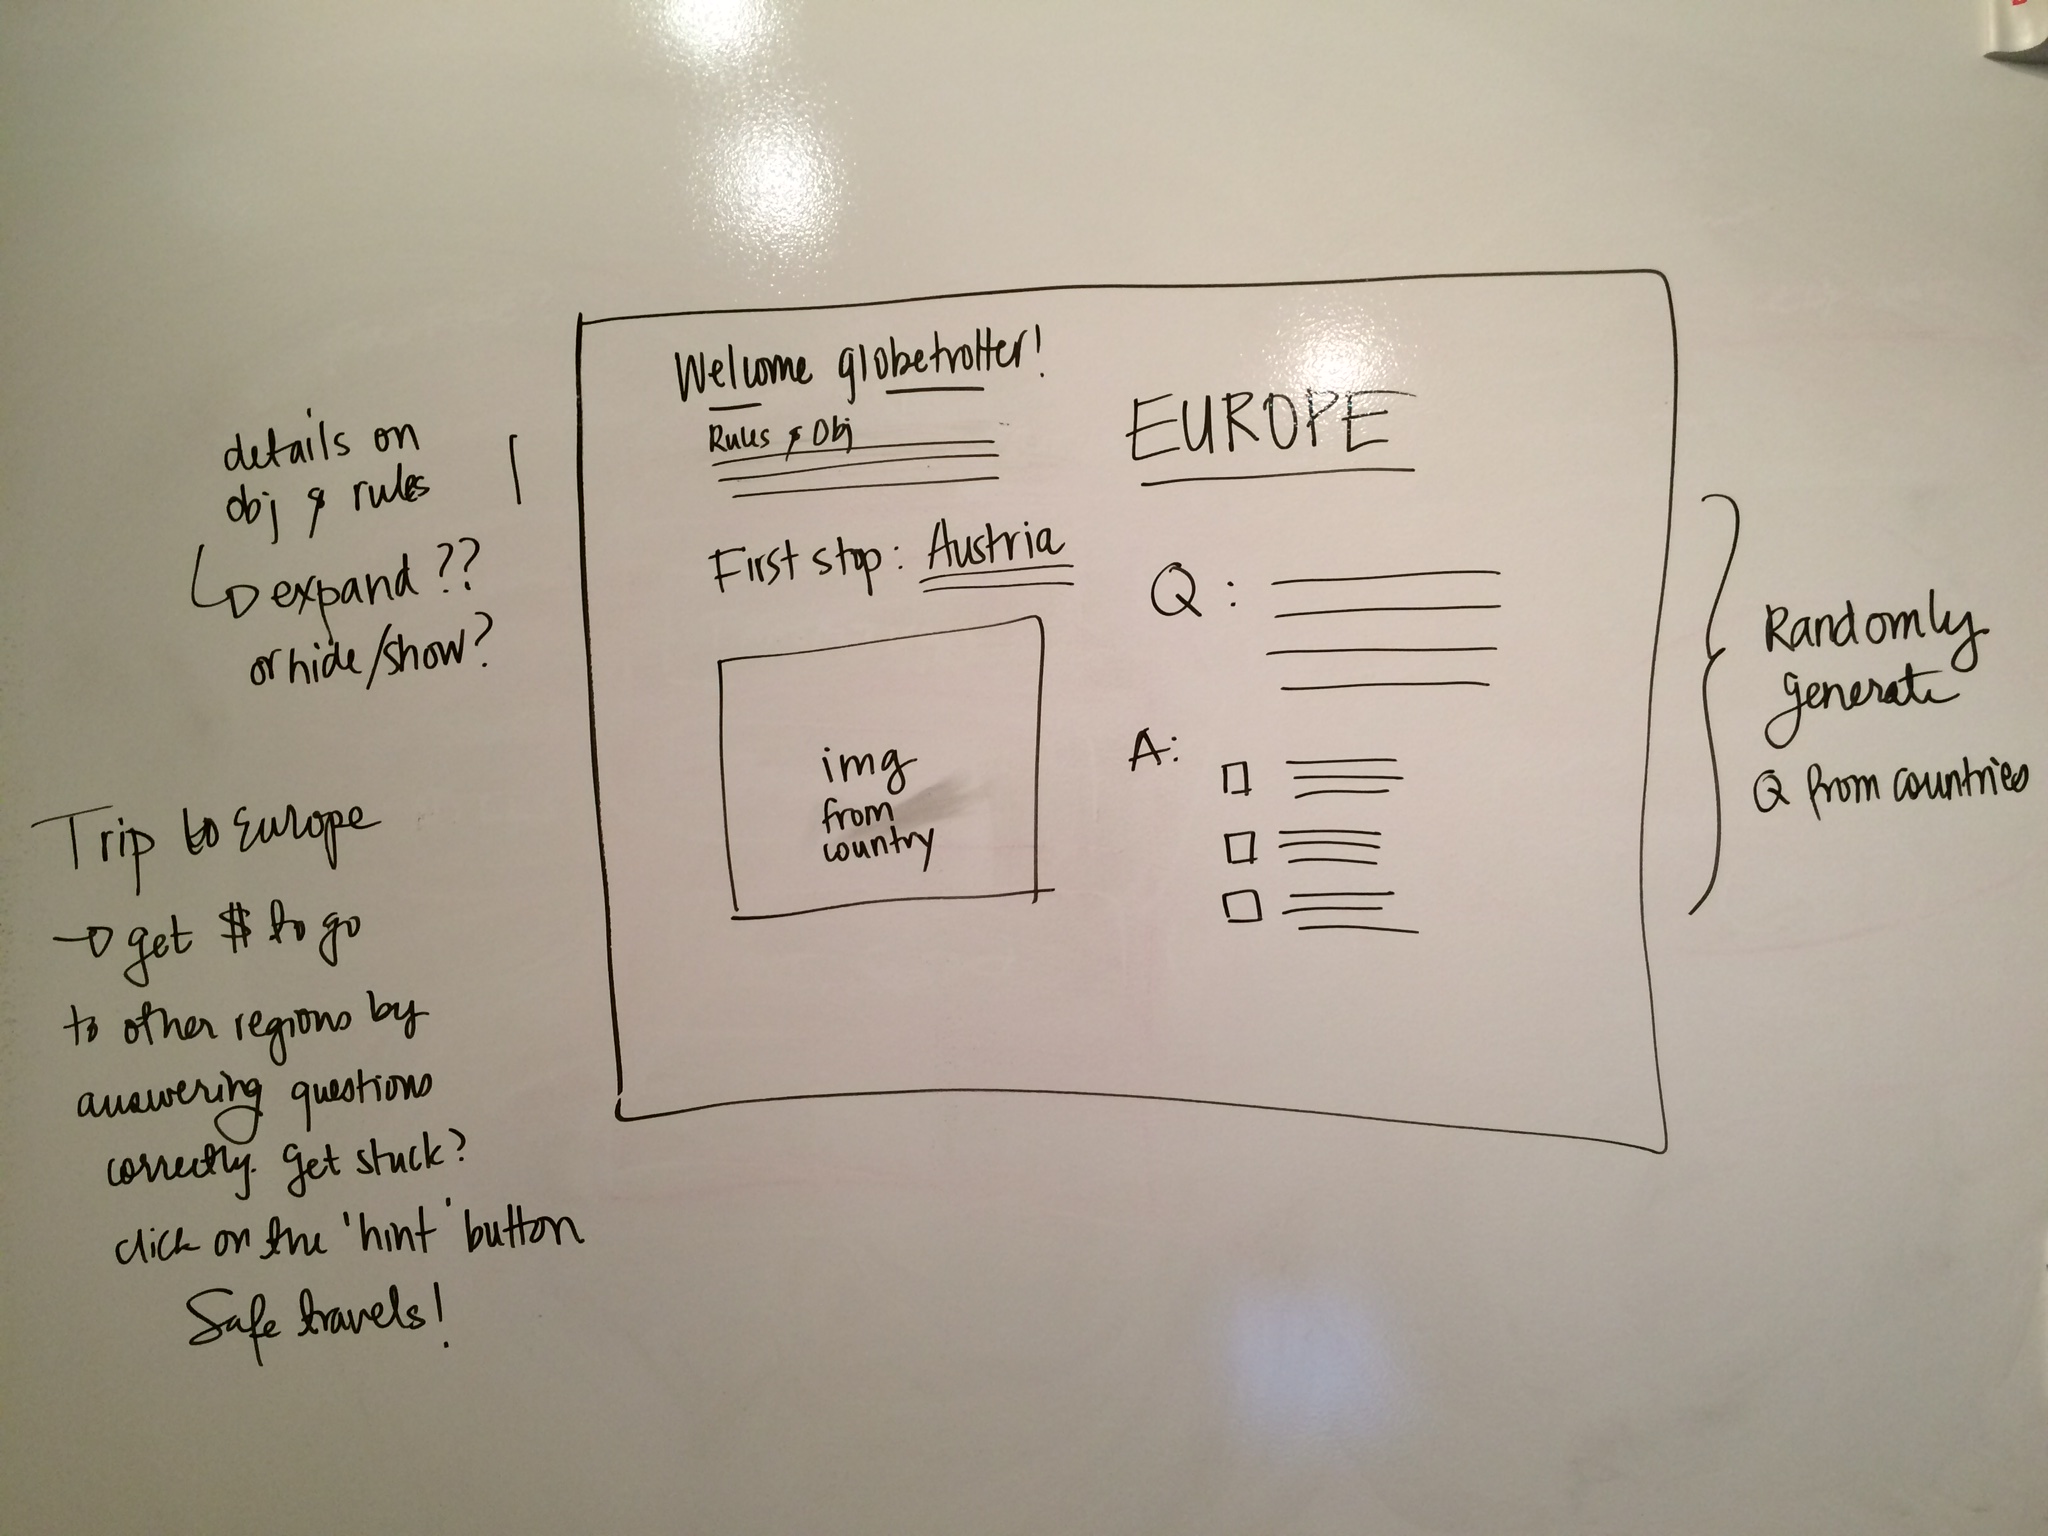 details on
obj & rules
expand ??
or hide/show?
Trip to Europe
get $ to go
to other regions by
answering questions
correctly. Get stuck?
click on the 'hint' button
Safe travels!
Welcome globetrotter!
Rules & Obj
First stop: Austria
img
from
country
EUROPE
Q:
A:
Randomly
generate
Q from countries